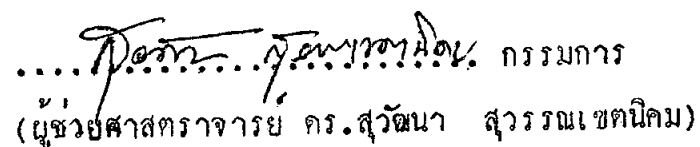 กรรมการ
(ผู้ช่วยศาสตราจารย์ ดร.สุวัฒนา สุวรรณเขตนิคม)